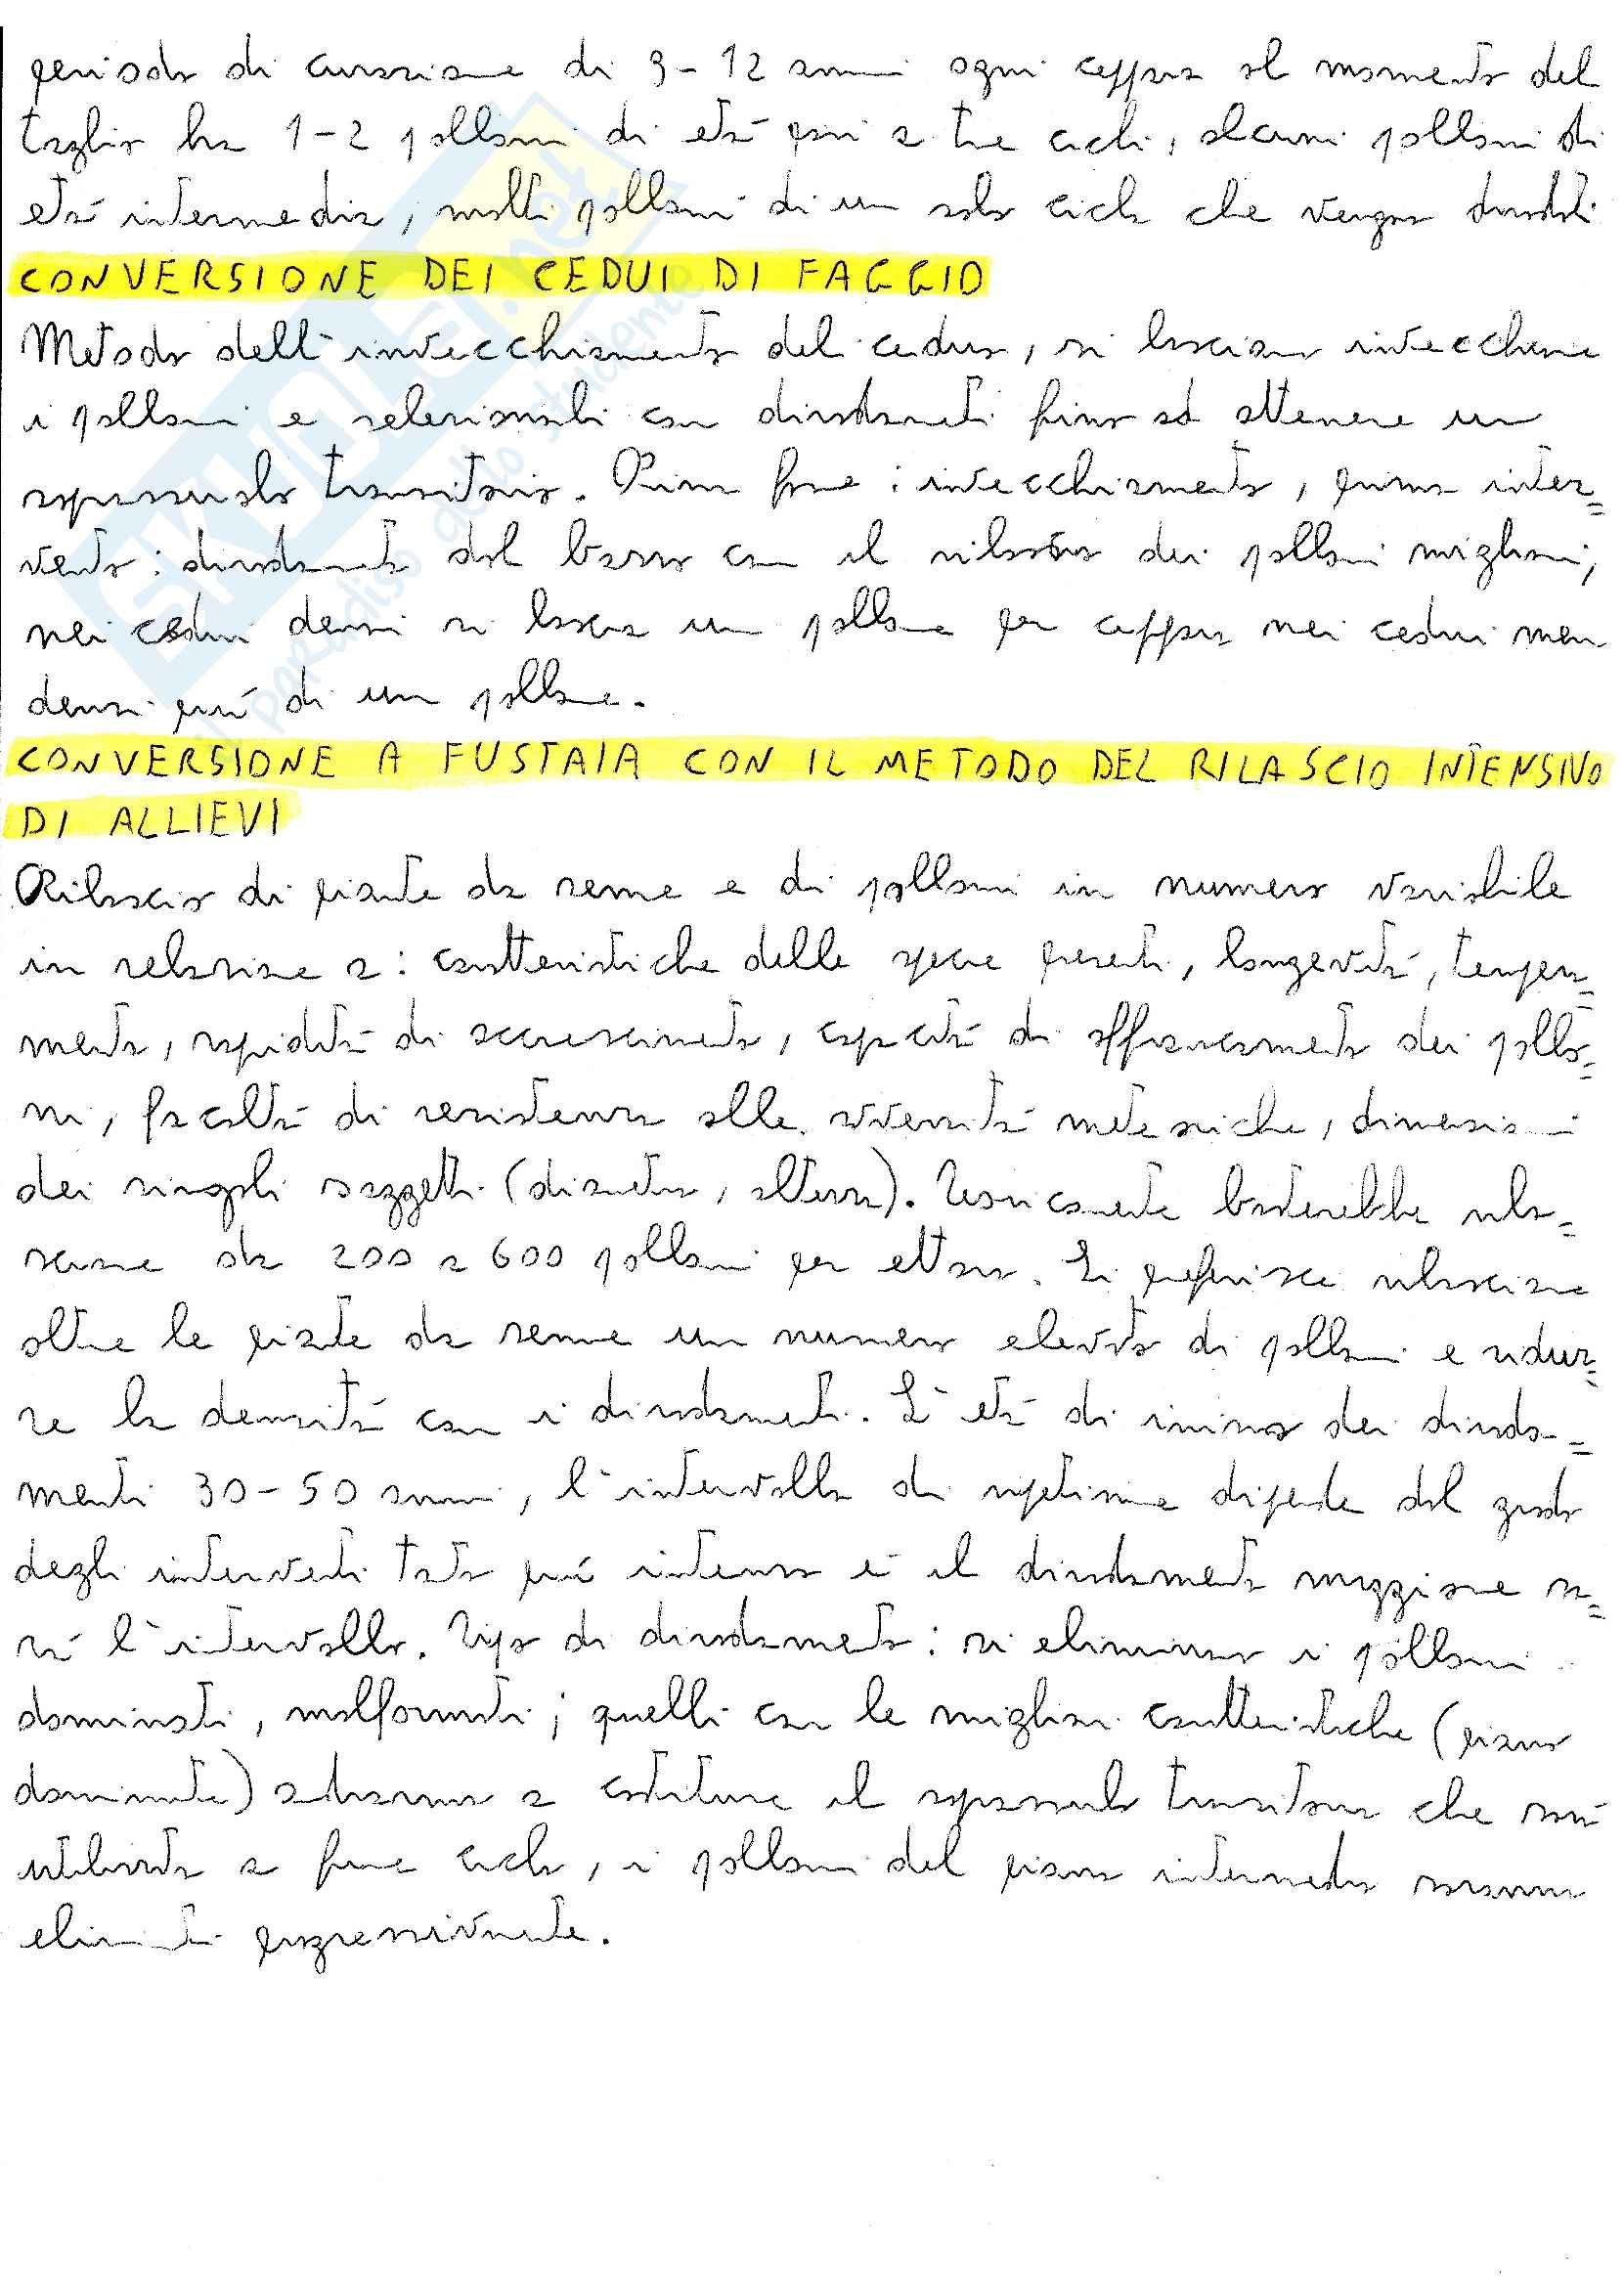 periodo di curazione di 9-12 anni ogni ceppaia al momento del
taglio ha 1-2 polloni di età pari a tre cicli, alcuni polloni di
età intermedia, molti polloni di un solo ciclo che vengono diradati
CONVERSIONE DEI CEDUI DI FAGGIO
Metodo dell'invecchiamento del ceduo, si lasciano invecchiare
i polloni e selezionarli con diradamenti fino ad ottenere un
soprassuolo transitorio. Prima fase: invecchiamento, primo inter=
vento: diradamento dal basso con il rilascio dei polloni migliori,
nei cedui densi si lascia un pollone per ceppaia nei cedui meno
densi più di un pollone.
CONVERSIONE A FUSTAIA CON IL METODO DEL RILASCIO INTENSIVO
DI ALLIEVI
Rilascio di piante da seme e di polloni in numero variabile
in relazione a: caratteristiche delle specie presenti, longevità, tempera=
mento, rapidità di accrescimento, capacità di affrancamento dei pollo=
ni, facoltà di resistenza alle avversità meteoriche, dimensioni
dei singoli soggetti (diametro, altezza). Teoricamente basterebbe rila=
sciare da 200 a 600 polloni per ettaro. Si preferisce rilasciare
oltre le piante da seme un numero elevato di polloni e ridur=
re la densità con i diradamenti. L'età di inizio dei dirada=
menti 30-50 anni, l'intervallo di ripetizione dipende dal grado
degli interventi tanto più intenso è il diradamento maggiore sa=
rà l'intervallo. Tipo di diradamento: si eliminano i polloni
dominati, malformati; quelli con le migliori caratteristiche (piano
dominante) andranno a costituire il soprassuolo transitorio che sarà
utilizzato a fine ciclo, i polloni del piano intermedio saranno
eliminati progressivamente.